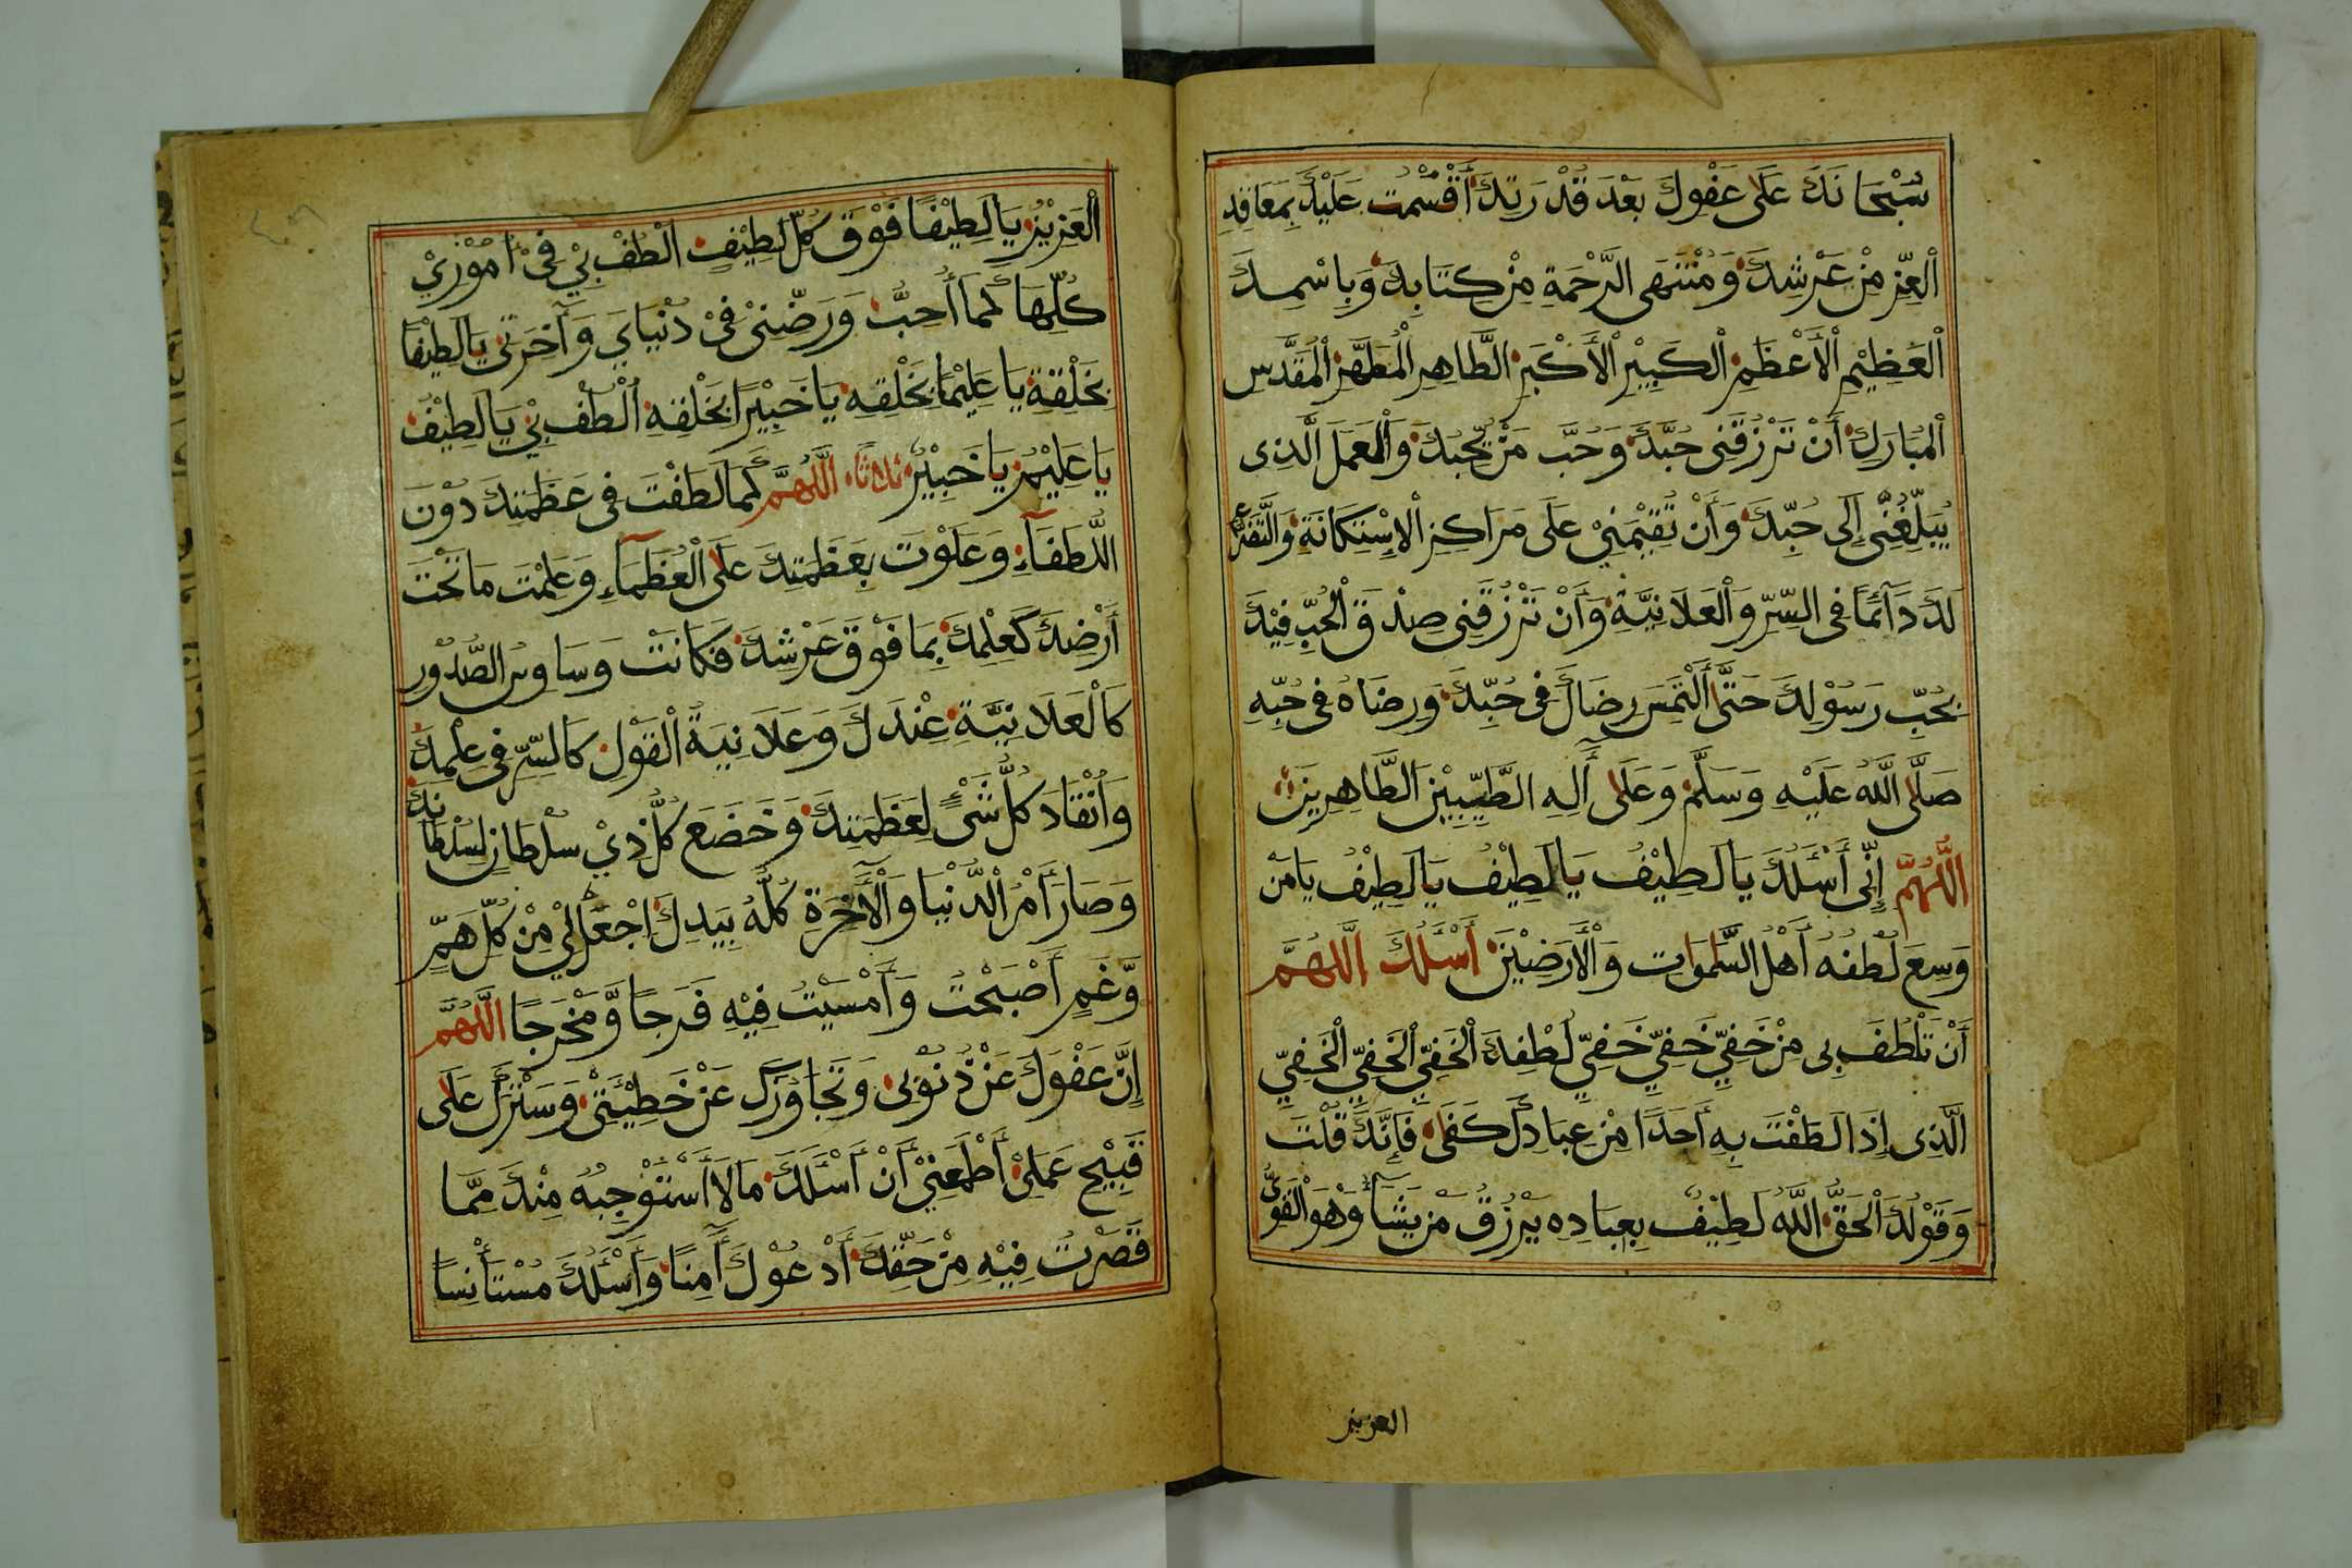 سُبْحَانَكَ عَلَى عَفْوِكَ بَعْدَ قُدْرَتِكَ أَقْسَمْتُ عَلَيْكَ بِمَعَاقِدِ
الْعِزِّ مِنْ عَرْشِكَ وَمُنْتَهَى الرَّحْمَةِ مِنْ كِتَابِكَ وَبِاسْمِكَ
الْعَظِيْمِ الْأَعْظَمِ الْكَبِيْرِ الْأَكْبَرِ الطَّاهِرِ الْمُطَهَّرِ الْمُقَدَّسِ
الْمُبَارَكِ أَنْ تَرْزُقَنِى حُبَّكَ وَحُبَّ مَنْ يُحِبُّكَ وَالْعَمَلَ الَّذِى
يُبَلِّغُنِى إِلَى حُبِّكَ وَأَنْ تُقِيْمَنِيْ عَلَى مَرَاكِزِ الْاِسْتِكَانَةِ وَالتَّضَرُّعِ
لَكَ دَآئِمًا فِى السِّرِّ وَالْعَلَانِيَّةِ وَأَنْ تَرْزُقَنِى صِدْقَ الْحُبِّ فِيْكَ
بِحُبِّ رَسُوْلِكَ حَتَّى أَلْتَمِسَ رِضَاكَ فِى حُبِّكَ وَرِضَاهُ فِى حُبِّهِ
صَلَّى اللّٰهُ عَلَيْهِ وَسَلَّمَ وَعَلَى آلِهِ الطَّيِّبِيْنَ الطَّاهِرِيْنَ
اللّٰهُمَّ إِنِّى أَسْئَلُكَ يَا لَطِيْفُ يَا لَطِيْفُ يَا لَطِيْفُ يَا مَنْ
وَسِعَ لُطْفُهُ أَهْلَ السَّمٰوَاتِ وَالْأَرَضِيْنَ أَسْئَلُكَ اللّٰهُمَّ
أَنْ تَلْطُفَ بِى مِنْ خَفِيِّ خَفِيِّ خَفِيِّ لُطْفِكَ الْخَفِيِّ الْخَفِيِّ الْخَفِيِّ
الَّذِى إِذَا لَطَفْتَ بِهِ أَحَدًا مِنْ عِبَادِكَ كَفَى فَإِنَّكَ قُلْتَ
وَقَوْلُكَ الْحَقُّ اللّٰهُ لَطِيْفٌ بِعِبَادِهِ يَرْزُقُ مَنْ يَشَآءُ وَهُوَ الْقَوِىُّ
العزيز
الْعَزِيْزُ يَا لَطِيْفًا فَوْقَ كُلِّ لَطِيْفٍ الْطُفْ بِيْ فِى أُمُوْرِيْ
كُلِّهَا كَمَا أُحِبُّ وَرَضِّنِىْ فِىْ دُنْيَايَ وَآخِرَتِى يَا لَطِيْفًا
بِخَلْقِهِ يَا عَلِيْمًا بِخَلْقِهِ يَا خَبِيْرًا بِخَلْقِهِ اُلْطُفْ بِيْ يَا لَطِيْفُ
يَا عَلِيْمُ يَا خَبِيْرُ ثلاثا اللّٰهُمَّ كَمَا لَطَفْتَ فِى عَظَمَتِكَ دُوْنَ
اللُّطَفَآءِ وَعَلَوْتَ بِعَظَمَتِكَ عَلَى الْعُظَمَآءِ وَعَلِمْتَ مَا تَحْتَ
أَرْضِكَ كَعِلْمِكَ بِمَا فَوْقَ عَرْشِكَ فَكَانَتْ وَسَاوِسُ الصُّدُوْرِ
كَالْعَلَانِيَّةِ عِنْدَكَ وَعَلَانِيَةُ الْقَوْلِ كَالسِّرِّ فِى عِلْمِكَ
وَانْقَادَ كُلُّ شَىْءٍ لِعَظَمَتِكَ وَخَضَعَ كُلُّ ذِيْ سُلْطَانٍ لِسُلْطَانِكَ
وَصَارَ أَمْرُ الدُّنْيَا وَالْأٰخِرَةِ كُلُّهُ بِيَدِكَ اِجْعَلْ لِيْ مِنْ كُلِّ هَمٍّ
وَّغَمٍ أَصْبَحْتُ وَأَمْسَيْتُ فِيْهِ فَرَجًا وَّمَخْرَجًا اللّٰهُمَّ
إِنَّ عَفْوَكَ عَنْ ذُنُوْبِى وَتَجَاوُزَكَ عَنْ خَطِيْئَتِىْ وَسَتْرَكَ عَلَى
قَبِيْحِ عَمَلِىْ أَطْمَعَنِيْ أَنْ أَسْئَلَكَ مَا لَا أَسْتَوْجِبُهُ مِنْكَ مِمَّا
قَصَّرْتُ فِيْهِ مِنْ حَقِّكَ أَدْعُوْكَ آمِنًا وَأَسْئَلُكَ مُسْتَأْنِسًا